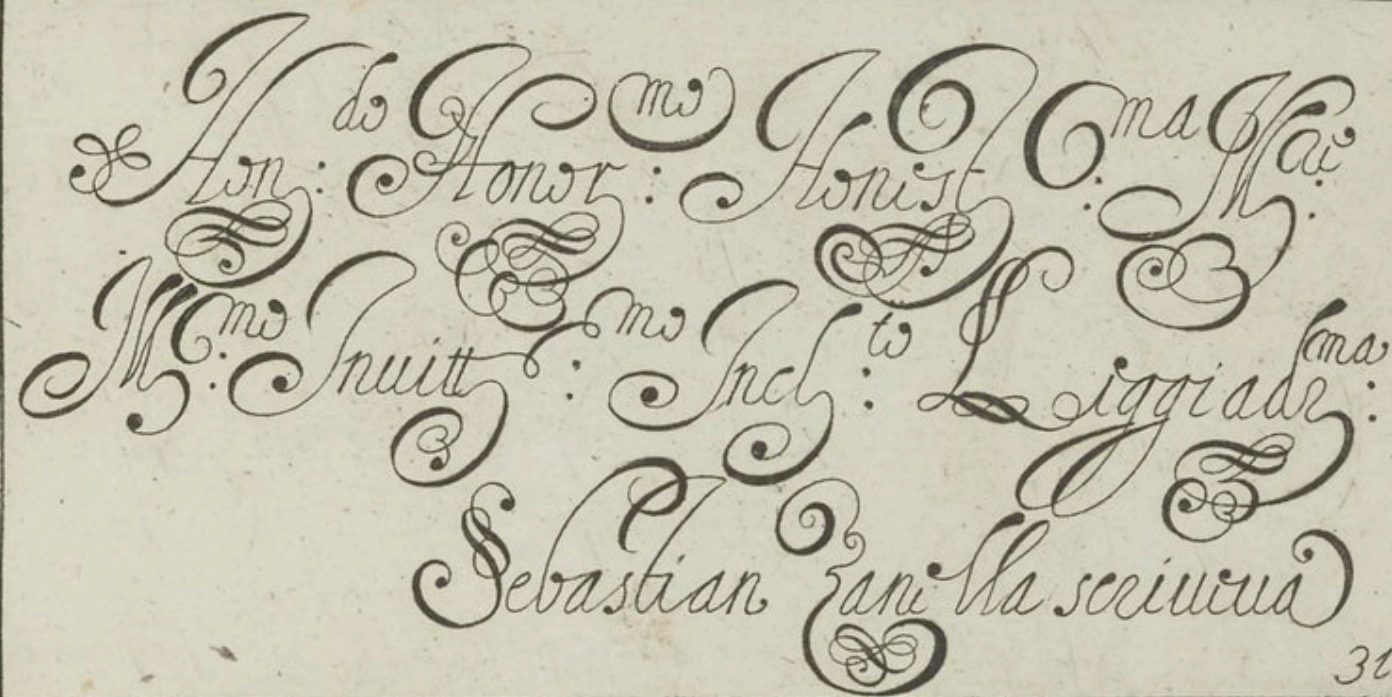 Hon:do Honor:mo Honest.ma Mae.
M.mo Inuitt:mo Incl:to Leggiadr:ma
Sebastian Zanella scriueua